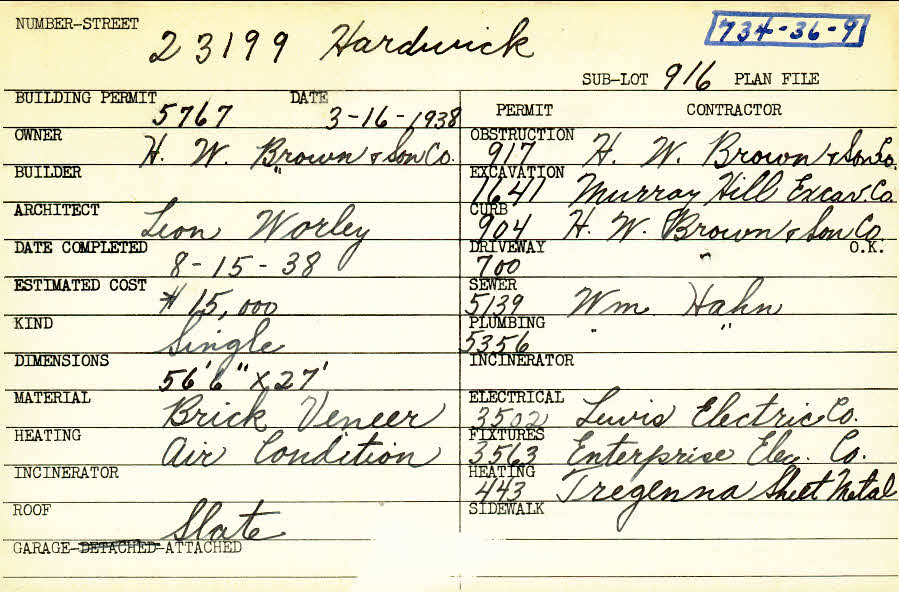 NUMBER-STREET 23199 Hardwick 734-36-9
SUB-LOT 916 PLAN FILE
BUILDING PERMIT 5767 DATE 3-16-1938
OWNER H. W. Brown & Son Co.
BUILDER "
ARCHITECT Leon Worley
DATE COMPLETED 8-15-38
ESTIMATED COST $15,000
KIND Single
DIMENSIONS 56'6" x 27'
MATERIAL Brick Veneer
HEATING Air Condition
INCINERATOR
ROOF Slate
GARAGE-DETACHED-ATTACHED
PERMIT CONTRACTOR
OBSTRUCTION 917 H. W. Brown & Son Co.
EXCAVATION 1641 Murray Hill Excav. Co.
CURB 904 H. W. Brown & Son Co.
DRIVEWAY 700 " O.K.
SEWER 5139 Wm. Hahn
PLUMBING 5356 " "
INCINERATOR
ELECTRICAL 3502 Lewis Electric Co.
FIXTURES 3563 Enterprise Elec. Co.
HEATING 443 Tregenna Sheet Metal
SIDEWALK